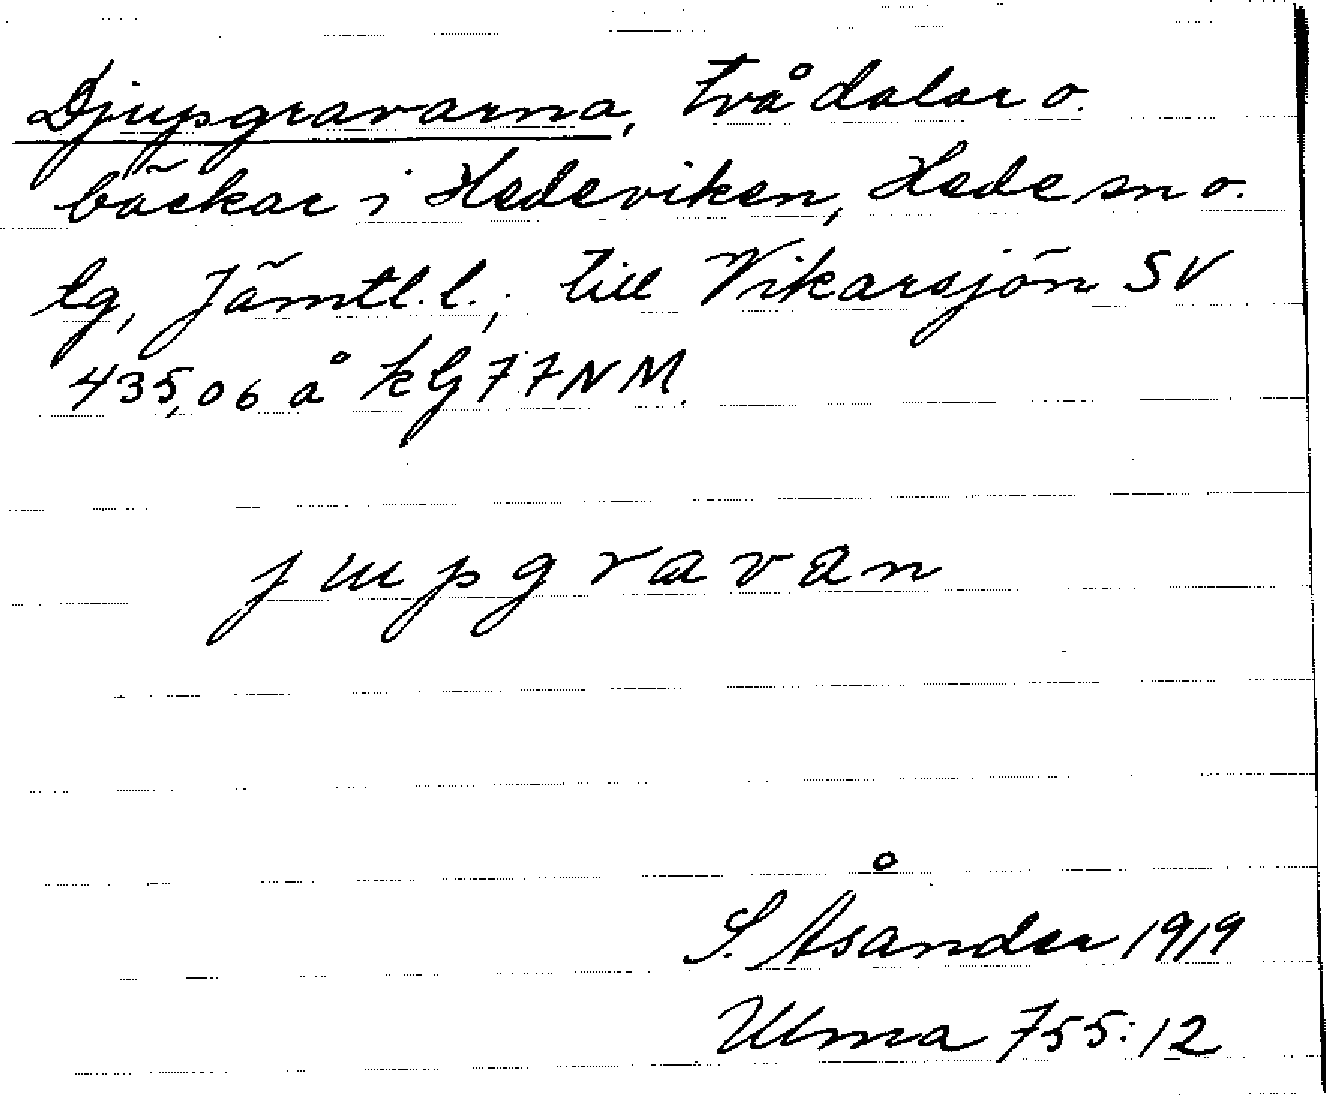 Djupgravarna, två dalar o.
bäckar i Hedeviken, Hede sn o.
tg, Jämtl. l., till Vikarsjön SV
435,06 å kG77NM.
jupgravan
S. Åsander 1919
Ulma 755:12